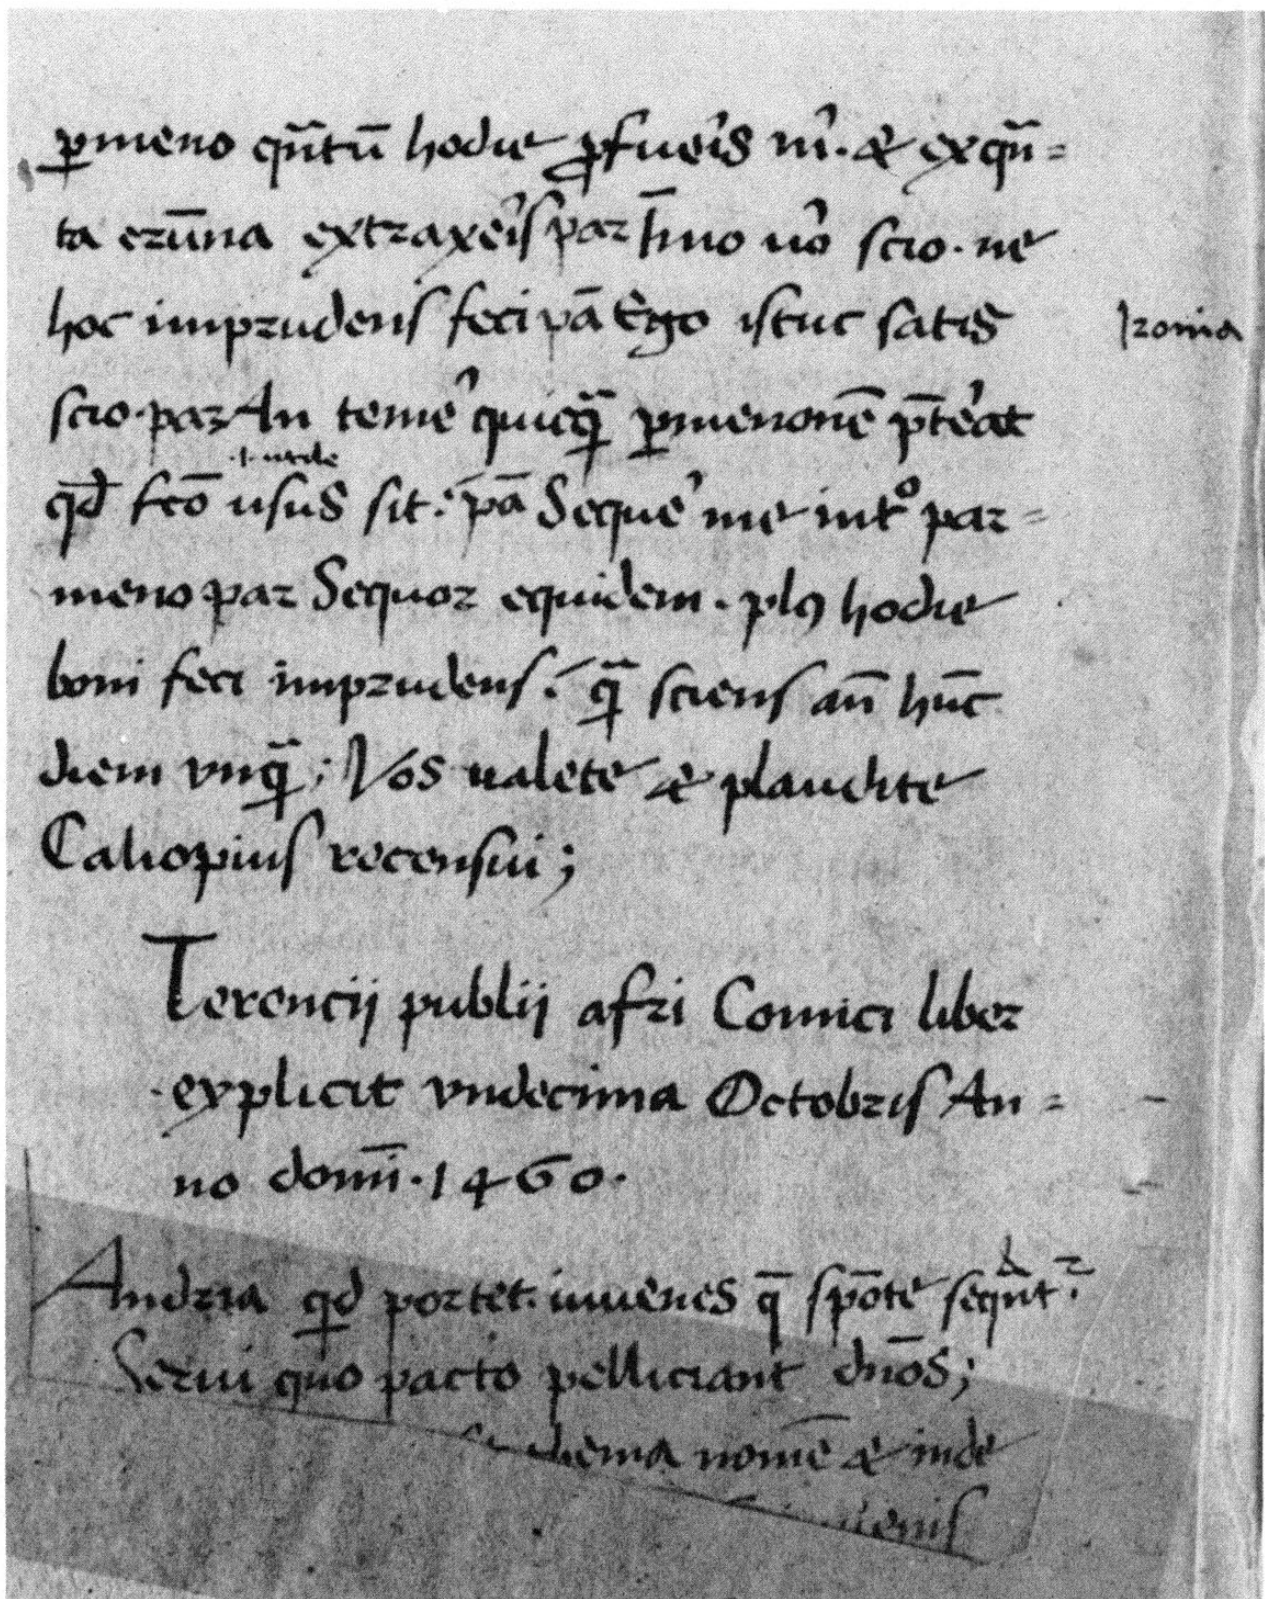 ꝑmeno qñtū hodie ꝓfueris m̄. & ex qñ=
ta erūna extraxeris par Īmo u̾o scio. ne
hoc imprudens feci pā Ego istuc satis
Ironia
scio. par An teme̾ quicq̄ ꝑmenonē p̄teat
.i. utile
qd̄ fc̄o usus sit. pā Seque̾ me int° par=
meno par Sequor equidem. plꝰ hodie
boni feci imprudens. q̄ sciens añ hūc
diem vnq̄; Vos ualete & plaudite
Caliopius recensui;
Terencij publij afri Comici liber
explicit vndecima Octobris An=
no domī. 1460.
Andria qd portet. iuuenes q̄ spōte sequnt̾.
Serui quo pacto pelliciant dn̄os;
nomē & inde